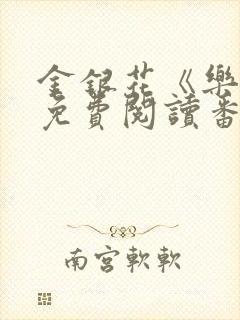 金銀花《樂
免費閱讀番
南宮軟軟